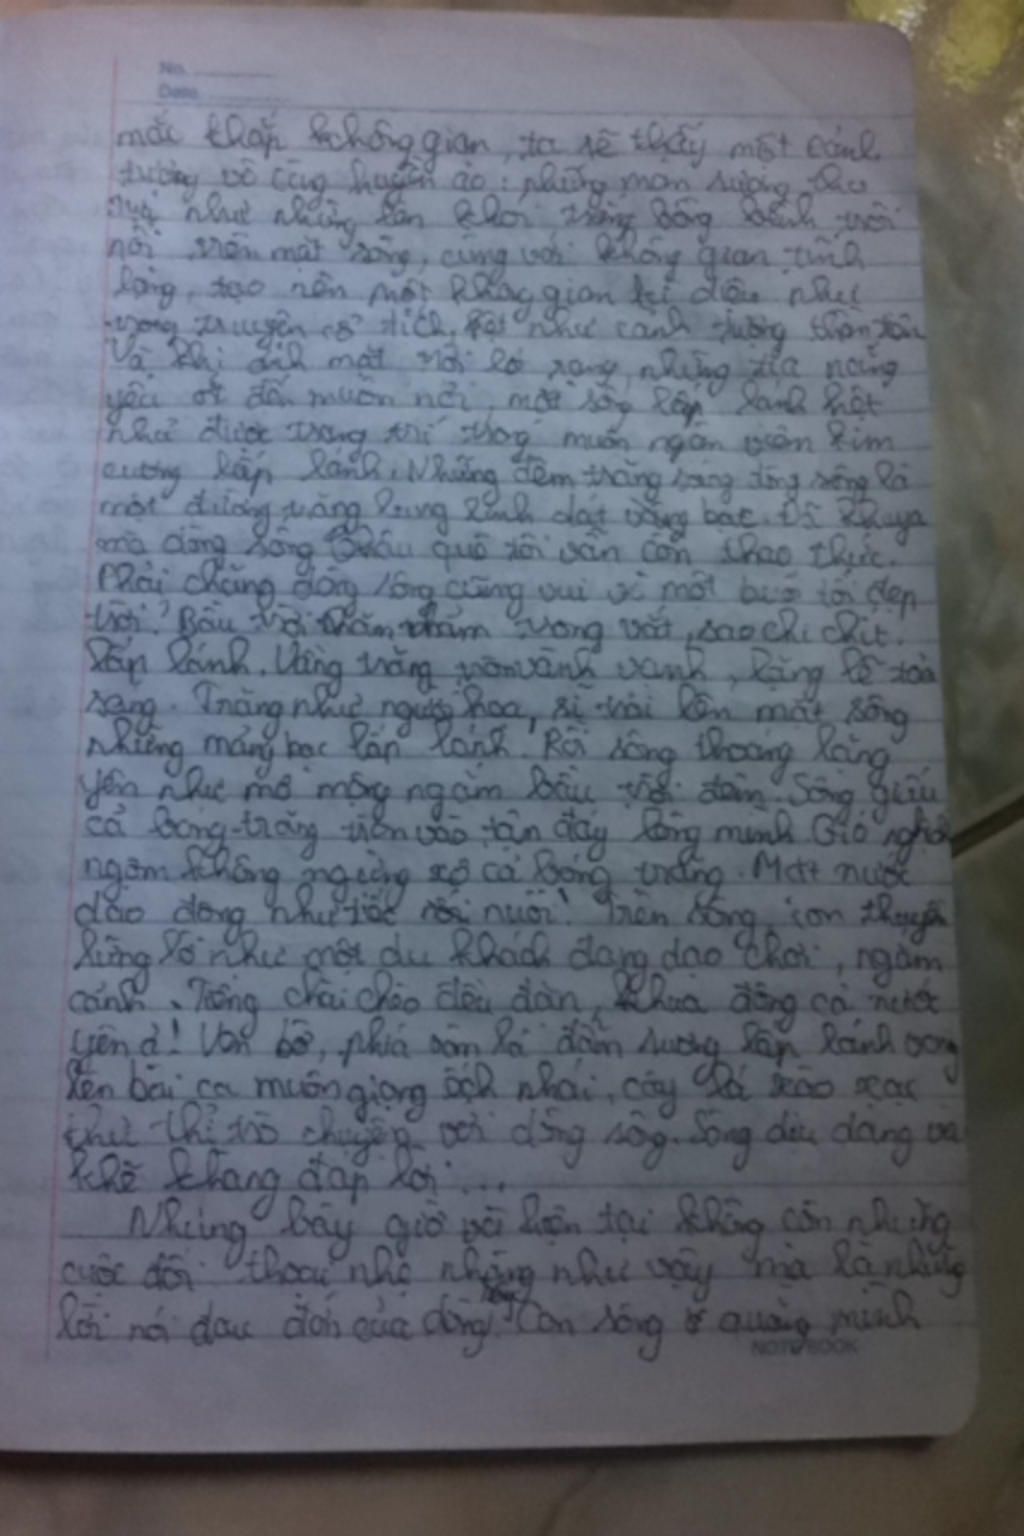 No.
Date
mắc khắp không gian, ta sẽ thấy một cảnh
tượng vô cùng huyền ảo: những màn sương thu
như những làn khói trắng bồng bềnh trôi
nổi trên mặt sông, cùng với không gian tĩnh
lặng, tạo nên một không gian kì diệu như
trong truyện cổ tích, hệt như cảnh tượng thần tiên
Và khi ánh mặt trời ló rạng, những tia nắng
yếu ớt đến muôn nơi, mặt sông lấp lánh hệt
như được trang trí trong muôn ngàn viên kim
cương lấp lánh. Những đêm trăng sáng dòng sông là
một đường trăng lung linh dát vàng bạc. Đã khuya
mà dòng sông quê tôi vẫn còn thao thức.
Phải chăng dòng sông cũng vui vì một buổi tối đẹp
trời! Bầu trời thăm thẳm trong vắt, sao chi chít
lấp lánh. Vầng trăng tròn vành vạnh, lặng lẽ tỏa
sáng. Trăng như người họa sĩ trải lên mặt sông
những mảng bạc lấp lánh. Rồi sông thoáng lặng
yên như mơ mộng ngắm bầu trời đêm. Sông giấu
cả bóng trăng tròn vào tận đáy lòng mình. Gió nghịch
ngợm không ngừng xô cả bóng trăng. Mặt nước
dao động như tiếc rời nuối! Trên dòng, con thuyền
lững lờ như một du khách đang dạo chơi, ngắm
cảnh. Tiếng chài chèo đều đặn, khua động cả nước
yên ả! Ven bờ, phía xóm là đầm sương lấp lánh vang
lên bài ca muôn giọng ếch nhái, cây lá xào xạc
như thì trò chuyện với dòng sông. Sông dịu dàng và
khẽ khàng đáp lời ...
Nhưng bây giờ với hiện tại không còn những
cuộc đối thoại nhẹ nhàng như vậy mà là những
lời nói đau đớn của dòng sông. Con sông ở quãng mình
NOTEBOOK